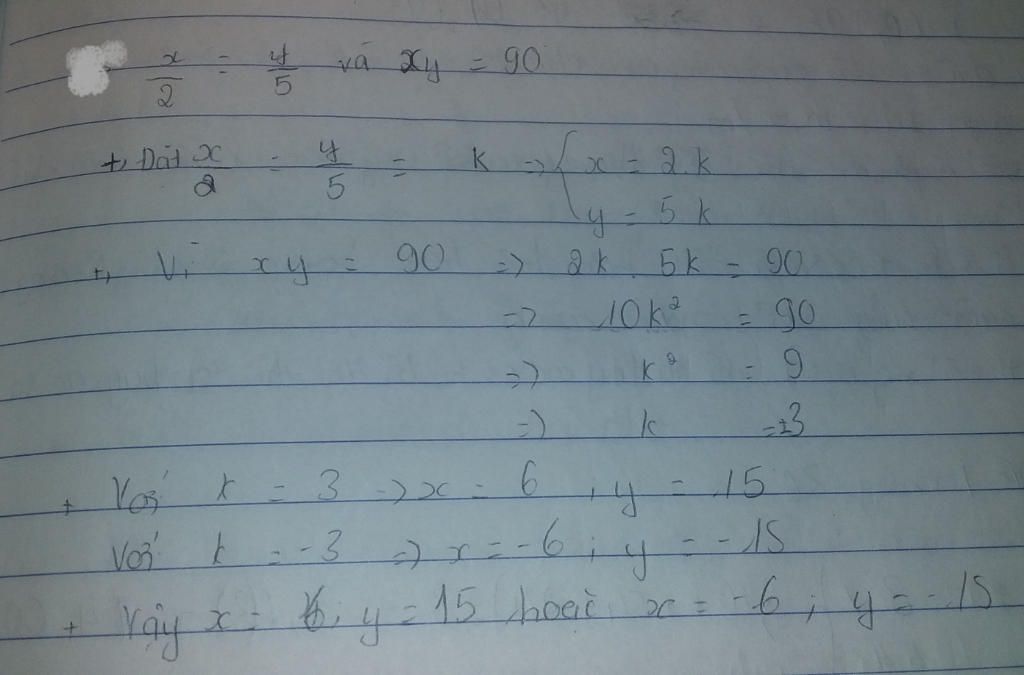 x/2 = y/5 và xy = 90
+, Đặt x/2 = y/5 = k => { x = 2.k
y = 5k
+, Vì xy = 90 => 2k . 5k = 90
=> 10k² = 90
=> k² = 9
=> k = ±3
+ Với k = 3 => x = 6 ; y = 15
Với k = -3 => x = -6 ; y = -15
+ Vậy x = 6 ; y = 15 hoặc x = -6 ; y = -15